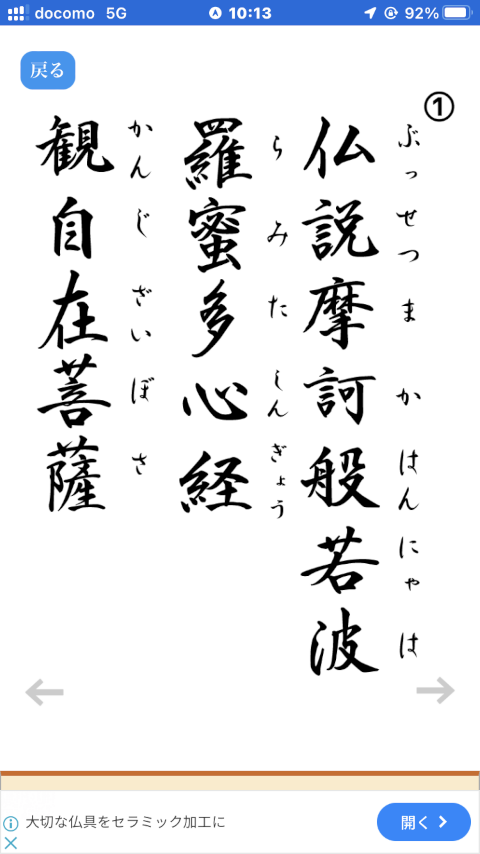 docomo 5G 10:13 92%
戻る
①
仏説摩訶般若波
ぶっせつまかはんにゃは
羅蜜多心経
らみたしんぎょう
観自在菩薩
かんじざいぼさ
大切な仏具をセラミック加工に
開く